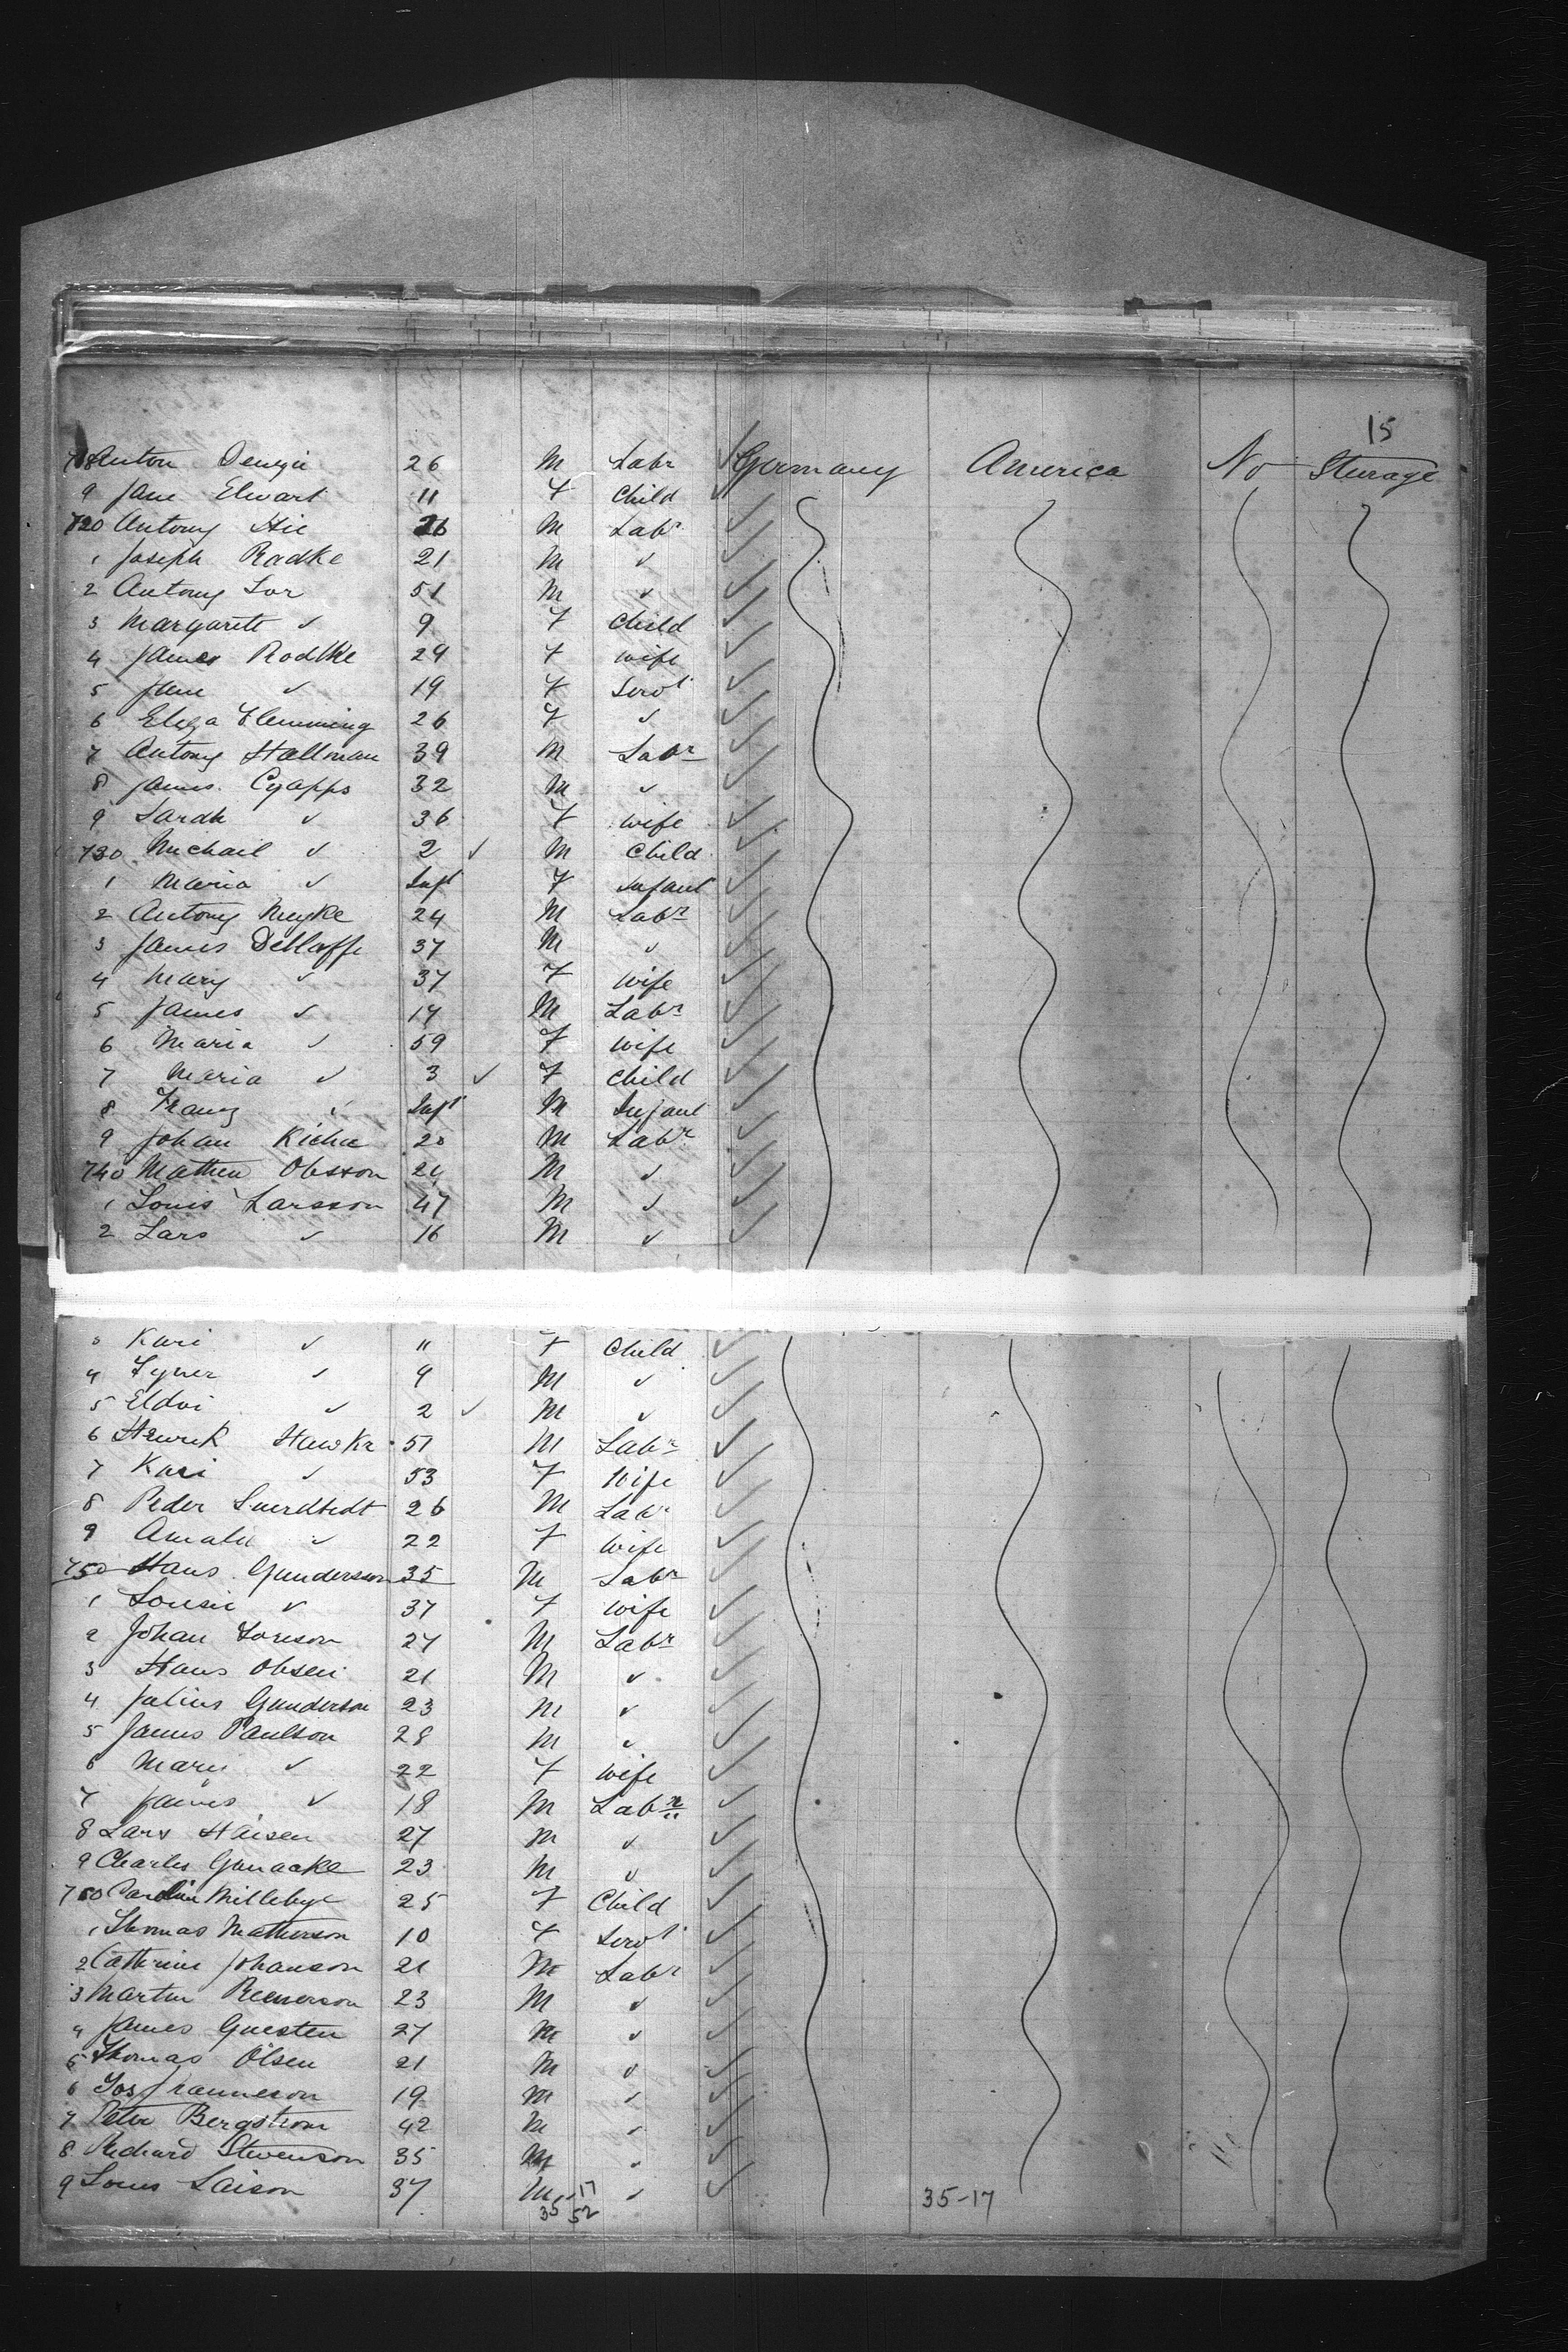 15
718 Anton 26 M Labr Germany America No Sturage
9 Jane Elwart 11 F Child
720 Antony Hie 26 M Labr
1 Joseph Radke 21 M ✓
2 Antony Lor 51 M ✓
3 Margarett ✓ 9 F Child
4 James Rodtke 29 F wife
5 Jane ✓ 19 F Servt
6 Eliza Flemming 26 F ✓
7 Antony Hallman 39 M Labr
8 James Cyapps 32 M ✓
9 Sarah ✓ 36 F wife
730 Michail ✓ 2 ✓ M Child
1 Maria ✓ Inft F Infant
2 Antony Muyke 24 M Labr
3 James 37 M ✓
4 Mary ✓ 37 F wife
5 James ✓ 17 M Labr
6 Maria ✓ 59 F wife
7 Maria ✓ 3 ✓ F Child
8 Franz ✓ Inft M Infant
9 Johan 20 M Labr
740 Mathew 24 M ✓
1 Louis Larsson 47 M ✓
2 Lars ✓ 16 M ✓
3 Kari ✓ 11 F Child
4 ✓ 9 M ✓
5 Eldvi ✓ 2 ✓ M ✓
6 Henrik Hawkr 51 M Labr
7 Kari ✓ 53 F Wife
8 Peder 26 M Labr
9 Amalu ✓ 22 F Wife
750 Hans Gunderson 35 M Labr
1 Lousie ✓ 37 F wife
2 Johan 27 M Labr
3 Hans Olsen 21 M ✓
4 Julius Gunderson 23 M ✓
5 James Paulson 28 M ✓
6 Mary ✓ 22 F wife
7 James ✓ 18 M Labr
8 Lars Haisen 27 M ✓
9 Charles 23 M ✓
760 25 F Child
1 Thomas Matherson 10 F Servt
2 Catherine Johanson 21 M Labr
3 Martin 23 M ✓
4 James Guesten 27 M ✓
5 Thomas Olsen 21 M ✓
6 19 M ✓
7 Peter Bergstrom 42 M ✓
8 Richard Stevenson 35 M ✓
9 Louis Laison 37 M ✓
35 17 52
35-17